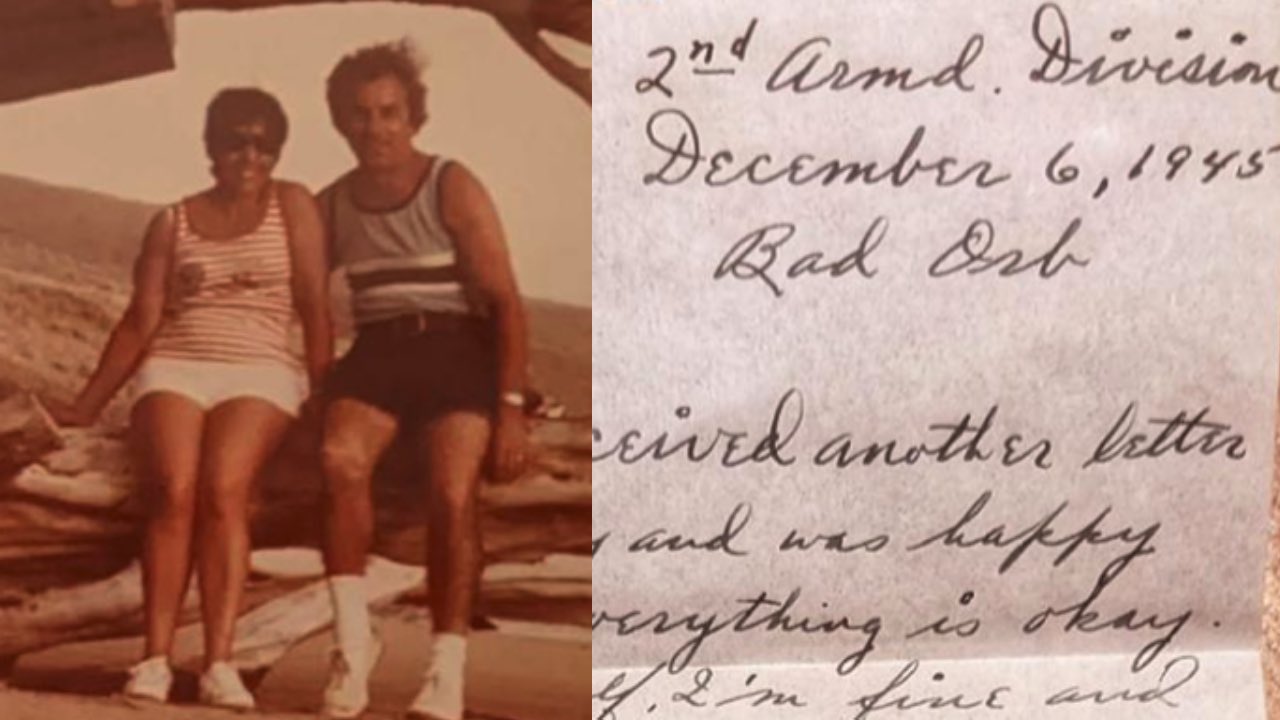 2nd Armd. Division
December 6, 1945
Bad Orb
ceived another letter
and was happy
verything is okay.
I'm fine and